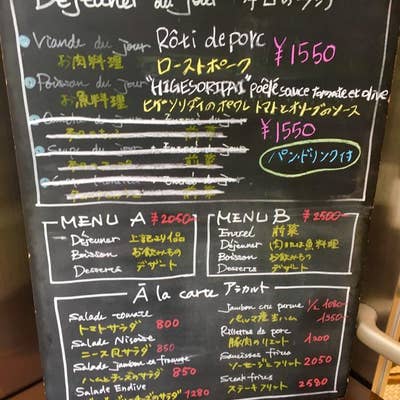 Déjeuner du jour 本日のランチ
Viande du jour Rôti de porc
お肉料理 ローストポーク ¥1550
Poisson du jour "HIGESORIDAI" poêlé sauce tomate et olive
お魚料理 ヒゲソリダイのポワレ トマトとオリーブのソース
¥1550
パン・ドリンク付
MENU A ¥2050
Déjeuner 上記より1品
Boisson お飲みもの
Desserts デザート
MENU B ¥2500
Entrée 前菜
Déjeuner 肉又は魚料理
Boisson お飲みもの
Desserts デザート
À la carte アラカルト
Salade tomate
トマトサラダ 800
Salade Niçoise
ニース風サラダ 850
Salade jambon et fromage
ハムとチーズのサラダ 850
Salade Endive
1280
Jambon cru parme 1/2 1080
パルマ産生ハム 1950
Rillettes de porc
豚肉のリエット 1200
Saucisses frites
ソーセージとフリット 2050
Steak frites
ステーキフリット 2580